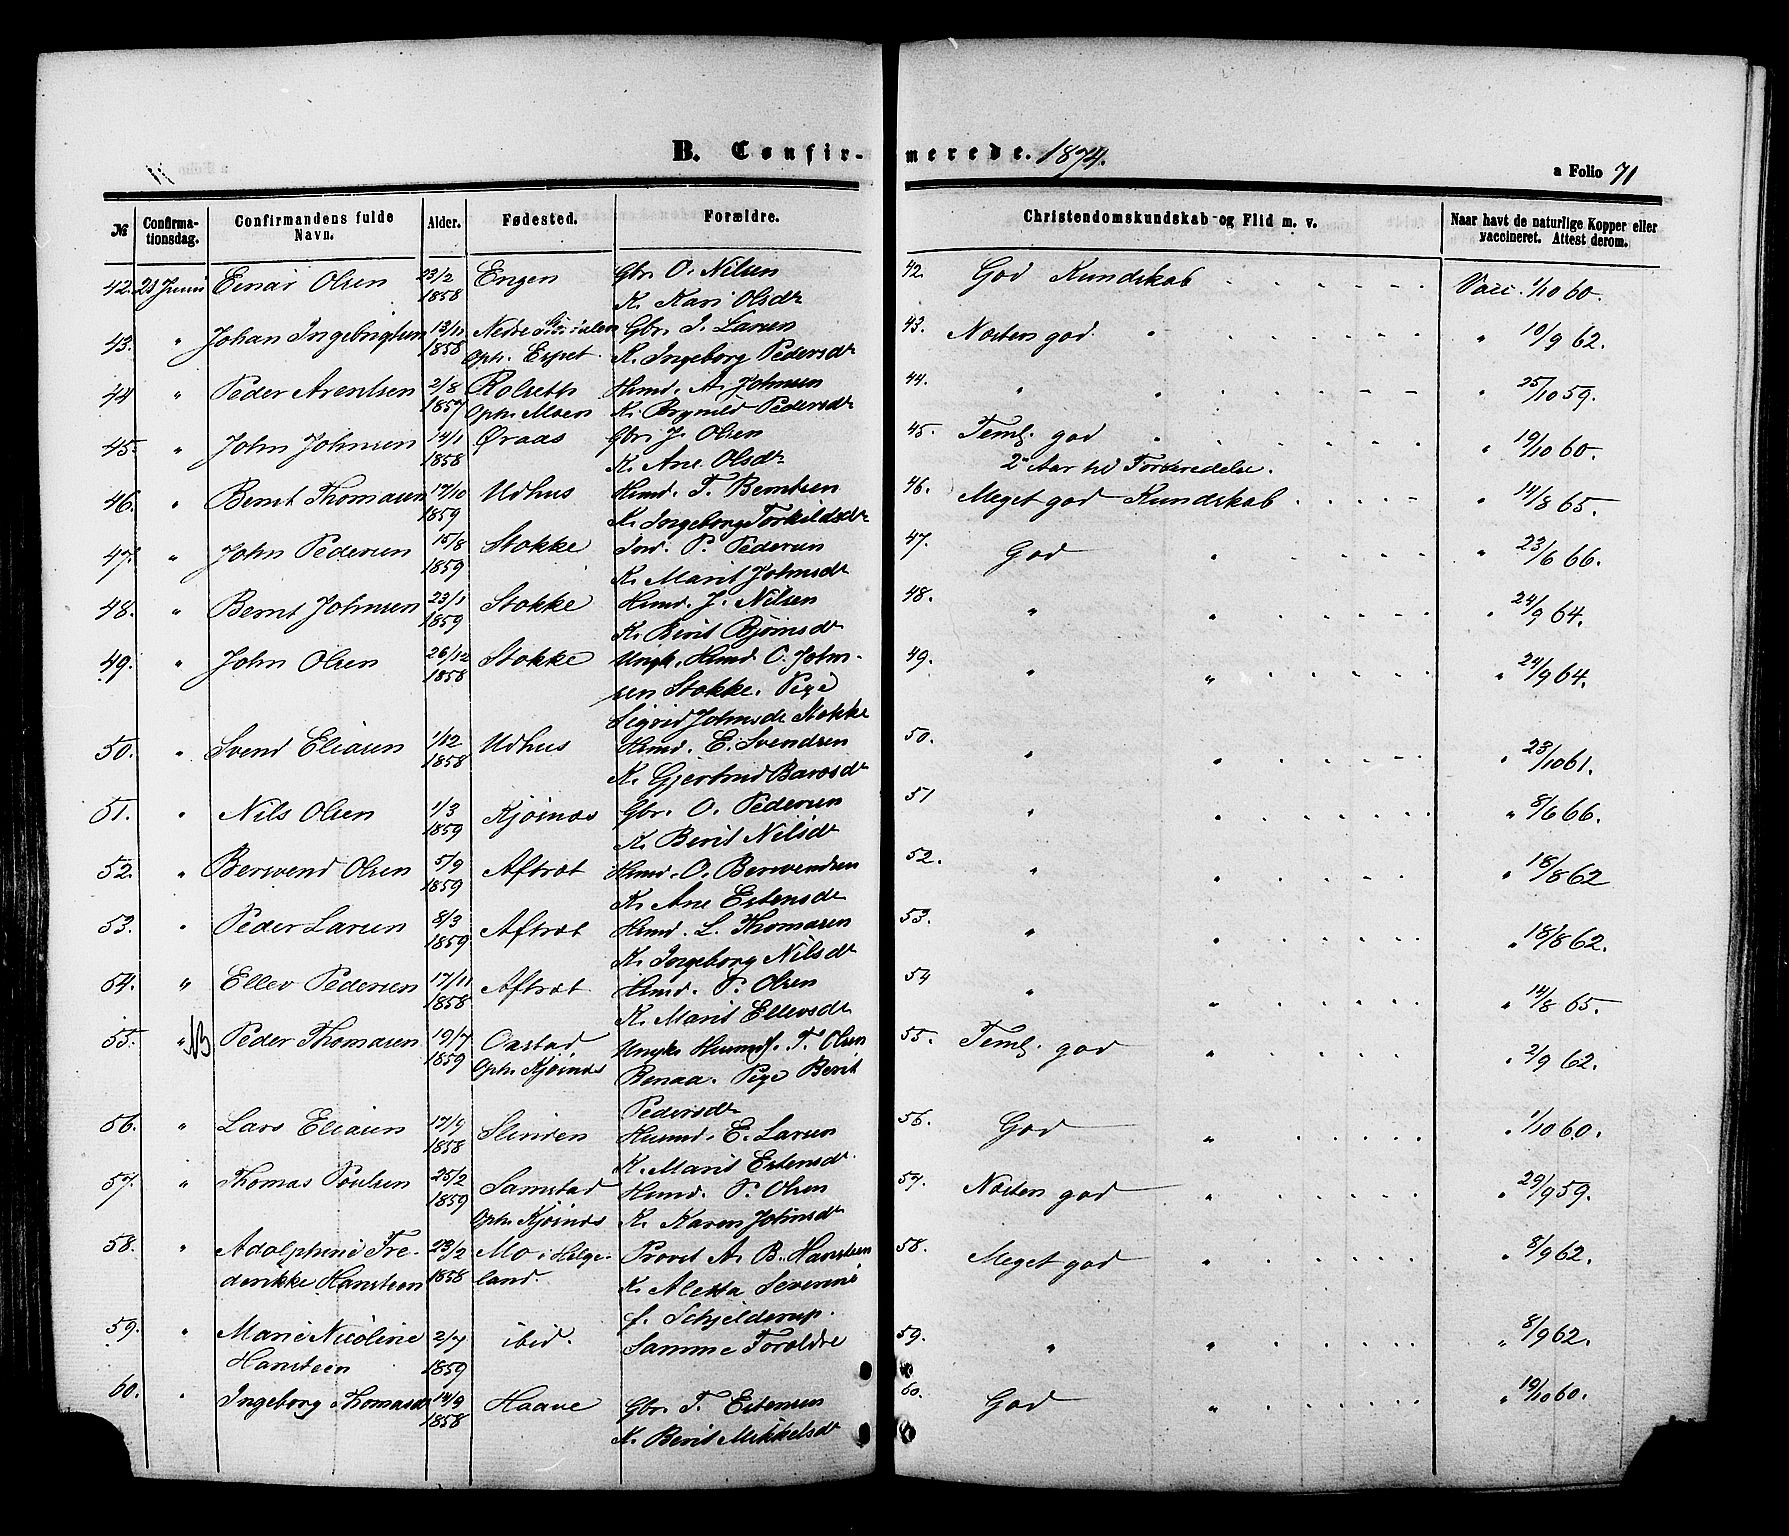 B. Confirmerede. 1874.
a Folio 71
№ Confirmationsdag. Confirmandens fulde Navn. Alder. Fødested. Forældre. Christendomskundskab og Flid m. v. Naar havt de naturlige Kopper eller vaccineret. Attest derom.
42. 21 Juni Einar Olsen 23/2 1858 Engen Gbr. O. Nilsen 42. God Kundskab Vacc. 1/10 60.
K. Kari Olsdr
43. " Johan Ingebrigtsen 13/11 1858 Nedre Gbr. I. Larsen 43. Næsten god " " 10/9 62.
Oph. Espet K. Ingeborg Pedersdr
44 " Peder Arentsen 2/8 1857 Rolseth Hmd. A. Johnsen 44. " " " 25/10 59.
Oph. Moen K. Brynild Pedersdr
45. " John Johnsen 14/1 1858 Øraas Gbr. J. Olsen 45. Teml. god " " 19/10 60.
K. Ane Olsdr 2 Aar til Forberedelse.
46. " Bernt Thomasen 17/10 1859 Udhus Hmd. T. Berntsen 46. Meget god Kundskab " 14/8 65.
K. Ingeborg Torkildsdr
47. " John Pedersen 15/8 1859 Stokke Ind. P. Pedersen 47. God " " 23/6 66.
K. Marit Johnsdr
48. " Bernt Johnsen 23/1 1859 Stokke Hmd. J. Nilsen 48. " " " 24/9 64.
K. Berit Bjørnsdr
49. " John Olsen 26/12 1858 Stokke Ungk. Hmd. O. John- 49. " " " 24/9 64.
sen Stokke. Pige
Sigrid Johnsdr Stokke
50. " Svend Eliasen 1/12 1858 Udhus Hmd. E. Svendsen 50. " " " 23/10 61.
K. Gjertrud Barosdr
51. " Nils Olsen 1/3 1859 Kjøsnæs Gbr. O. Pedersen 51 " " " 8/6 66.
K. Berit Nilsdr
52. " Bersvend Olsen 5/9 1859 Aftræt Hmd. O. Bersvendsen 52. " " " 18/8 62
K. Ane Estensdr
53. " Peder Larsen 8/3 1859 Aftræt Hmd. L. Thomasen 53. " " " 18/8 62.
K. Ingeborg Nilsdr
54. " Ellev Pedersen 17/11 1858 Aftræt Hmd. P. Olsen 54 " " " 14/8 65.
K. Marit Ellevsdr
55. " NB Peder Thomasen 19/7 1859 Aastad Ungk. Huusmd. T. Olsen 55. Teml. god " " 2/9 62.
Oph. Kjøsnæs Renaa. Pige Berit
Pedersdr
56. " Lars Eliasen 17/9 1858 Slinden Huusmd. E. Larsen 56. God " " 1/10 60.
K. Marit Estensdr.
57. " Thomas Poulsen 25/2 1859 Samstad Hmd. P. Olsen 57. Næsten god " " 29/9 59.
Oph. Kjøsnæs K. Karen Johnsdr
58. " Adolphine Fre- 23/2 1858 Mo i Helge- Provst A. B. Hansteen 58. Meget god " " 8/9 62.
derikke Hansteen land. K. Aletta Severine
f. Schjelderup.
59. " Marie Nicoline 2/7 1859 ibid. Samme Forældre 59. " " " 8/9 62.
Hansteen
60. " Ingeborg Thomasdr 14/9 1858 Haave Gbr. T. Estensen 60. God " " 19/10 60.
K. Berit Mikkelsdr